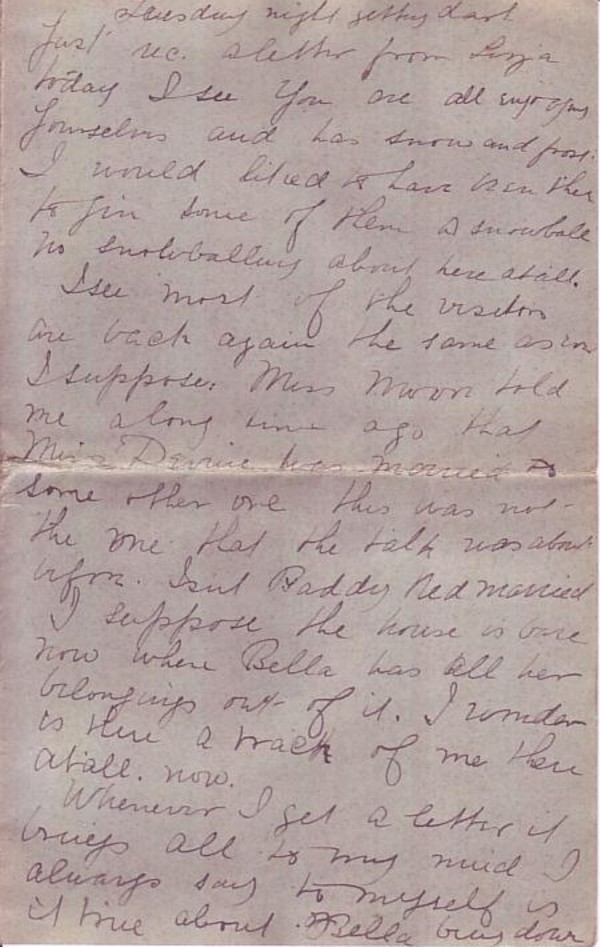 Tuesday night getting dark
Just rec. a letter from Lizja
today I see you are all enjoying
yourselves and has snow and frost.
I would liked to have been there
to give some of them a snowball
no snowballing about here atall.
I see most of the visitors
are back again the same as
I suppose. Miss Moon told
me along time ago that
Miss was married to
some other one this was not
the one that the talk was about
before. Isnt Paddy Red married
I suppose the house is bare
now where Bella has all her
belongings out of it. I wonder
is there a track of me there
atall. now.
Whenever I get a letter it
brings all to my mind I
always say to myself is
it true about Bella being down